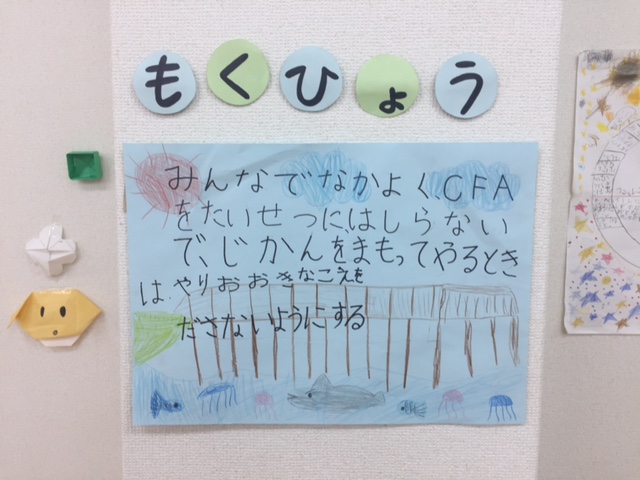 もくひょう
みんなでなかよくCFA
をたいせつに、はしらない
で、じかんをまもってやるとき
は、やりおおきなこえを
ださないようにする